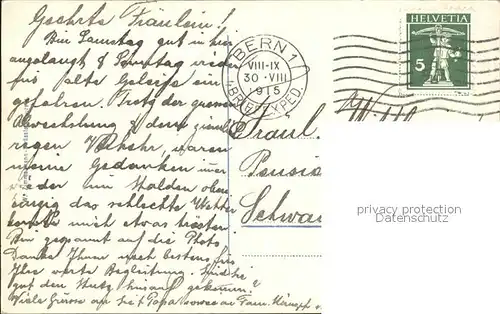 Geehrte Fräulein!
Bin Samstag gut in hier
angelangt & Sonntag wieder
ins alte Geleise ein
gefahren. Trotz der grossen
Abwechslung & dem ziemlich
regen Verkehr, waren
meine Gedanken immer
wieder am Halden oben
einzig das schlechte Wetter
konnte mich etwas trösten
Bin gespannt auf die Photo
Danke Ihnen noch bestens für
Ihre werte Begleitung. Sind Sie
gut den Stutz hinauf gekommen?
Viele Grüsse an Sie & Papa sowie an Fam.
BERN 1
VIII-IX
30·VIII
1915
BRIEFEXPED.
HELVETIA
5
Fraul.
Pensio
Schwa
privacy protection
Datenschutz